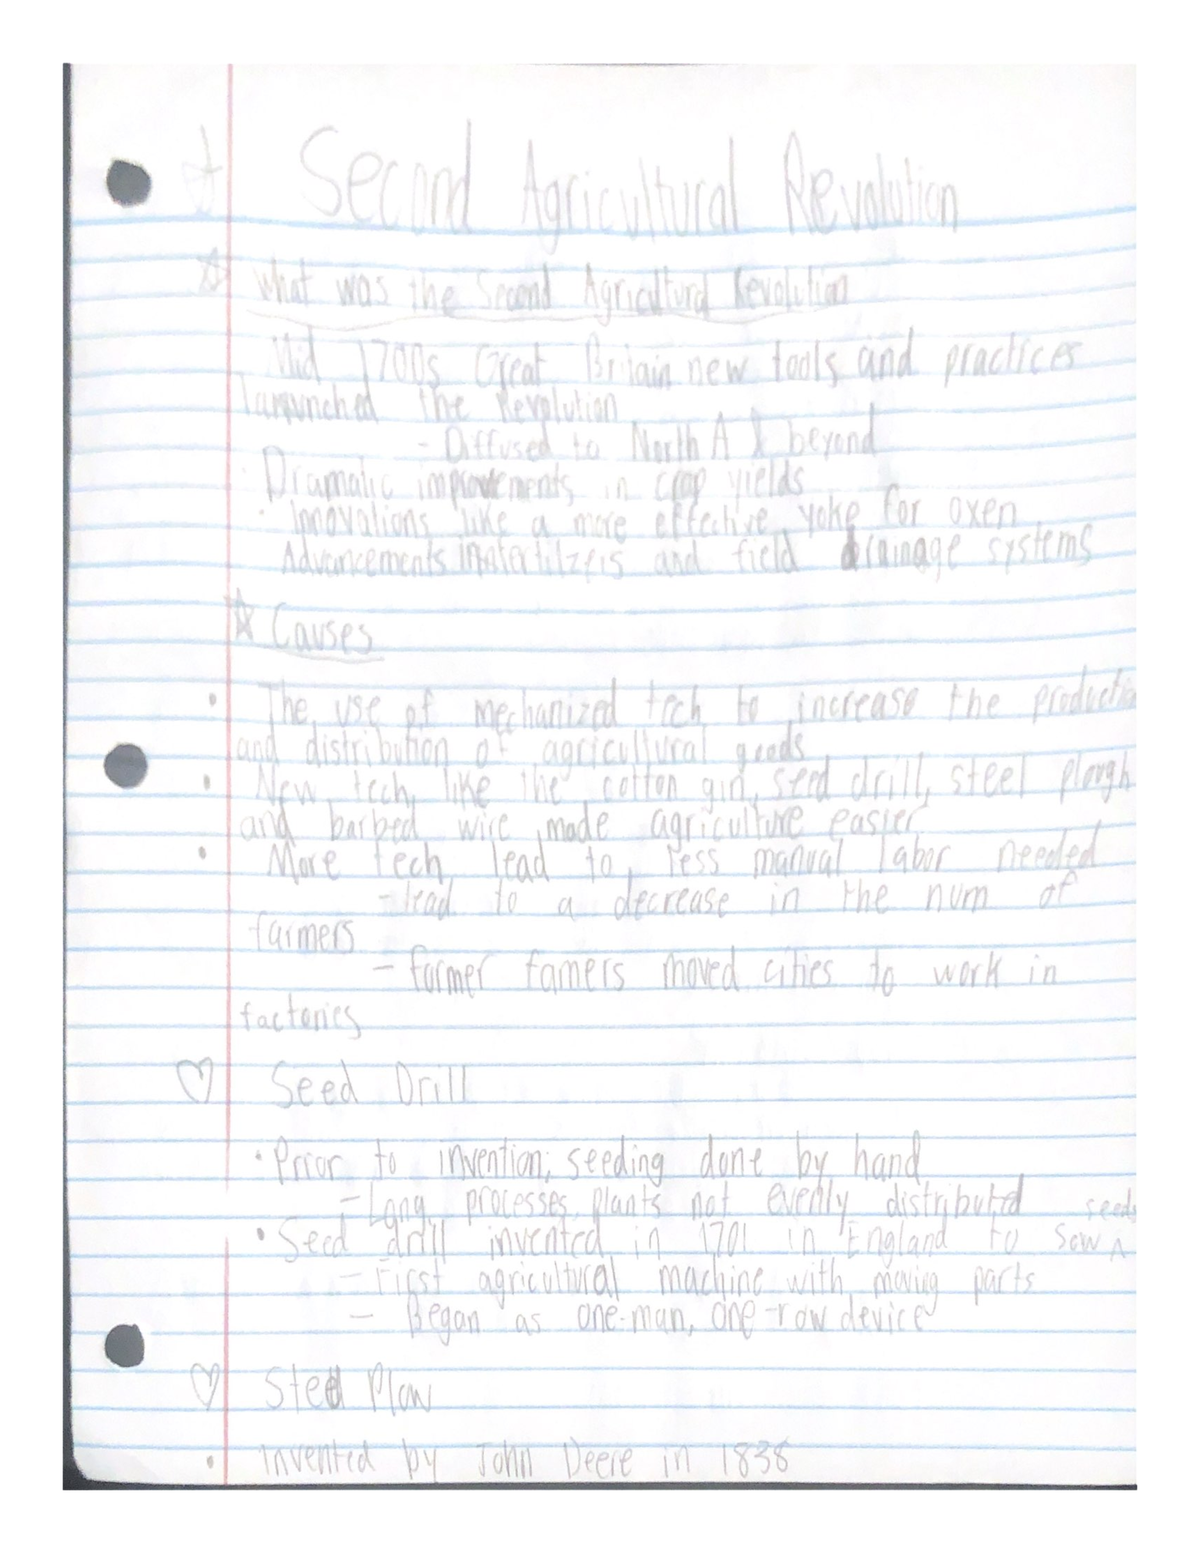 Second Agricultural Revolution
What was the Second Agricultural Revolution
Mid 1700s Great Britain new tools and practices
the Revolution
- Diffused to North A & beyond
Dramatic improvements in crop yields
· Innovations like a more effective yoke for oxen
Advancements and field drainage systems
Causes
• The use of mechanized tech to increase the production
and distribution of agricultural goods
• New tech, like the cotton gin, seed drill, steel plough
and barbed wire made agriculture easier
• More tech lead to less manual labor needed
- lead to a decrease in the num of
farmers
- former famers moved cities to work in
factories
♡ Seed Drill
• Prior to invention, seeding done by hand
- Long processes, plants not evenly distributed
• Seed drill invented in 1701 in England to sow ^ seeds
- First agricultural machine with moving parts
- Began as one-man, one-row device
♡ Steel Plow
• invented by John Deere in 1838